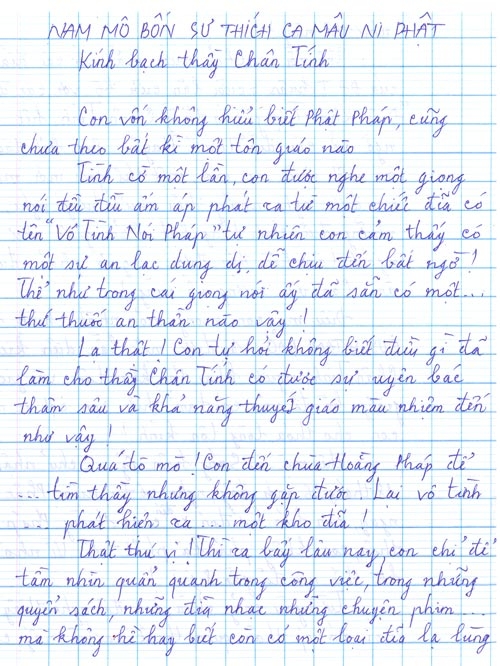 NAM MÔ BỔN SƯ THÍCH CA MÂU NI PHẬT
Kính bạch thầy Chân Tính
Con vốn không hiểu biết Phật Pháp, cũng
chưa theo bất kì một tôn giáo nào
Tình cờ một lần, con được nghe một giọng
nói đều đều ấm áp phát ra từ một chiếc đĩa có
tên "Vô Tình Nói Pháp" tự nhiên con cảm thấy có
một sự an lạc dung dị, dễ chịu đến bất ngờ!
Thể như trong cái giọng nói ấy đã sẵn có một...
thứ thuốc an thần nào vậy!
Lạ thật! Con tự hỏi không biết điều gì đã
làm cho thầy Chân Tính có được sự uyên bác
thâm sâu và khả năng thuyết giáo màu nhiệm đến
như vậy!
Quá tò mò! Con đến chùa Hoằng Pháp để
... tìm thầy nhưng không gặp được! Lại vô tình
... phát hiện ra... một kho đĩa!
Thật thú vị! Thì ra bấy lâu nay, con chỉ để
tầm nhìn quẩn quanh trong công việc, trong những
quyển sách, những đĩa nhạc những chuyện phim....
mà không hề hay biết còn có một loại đĩa lạ lùng